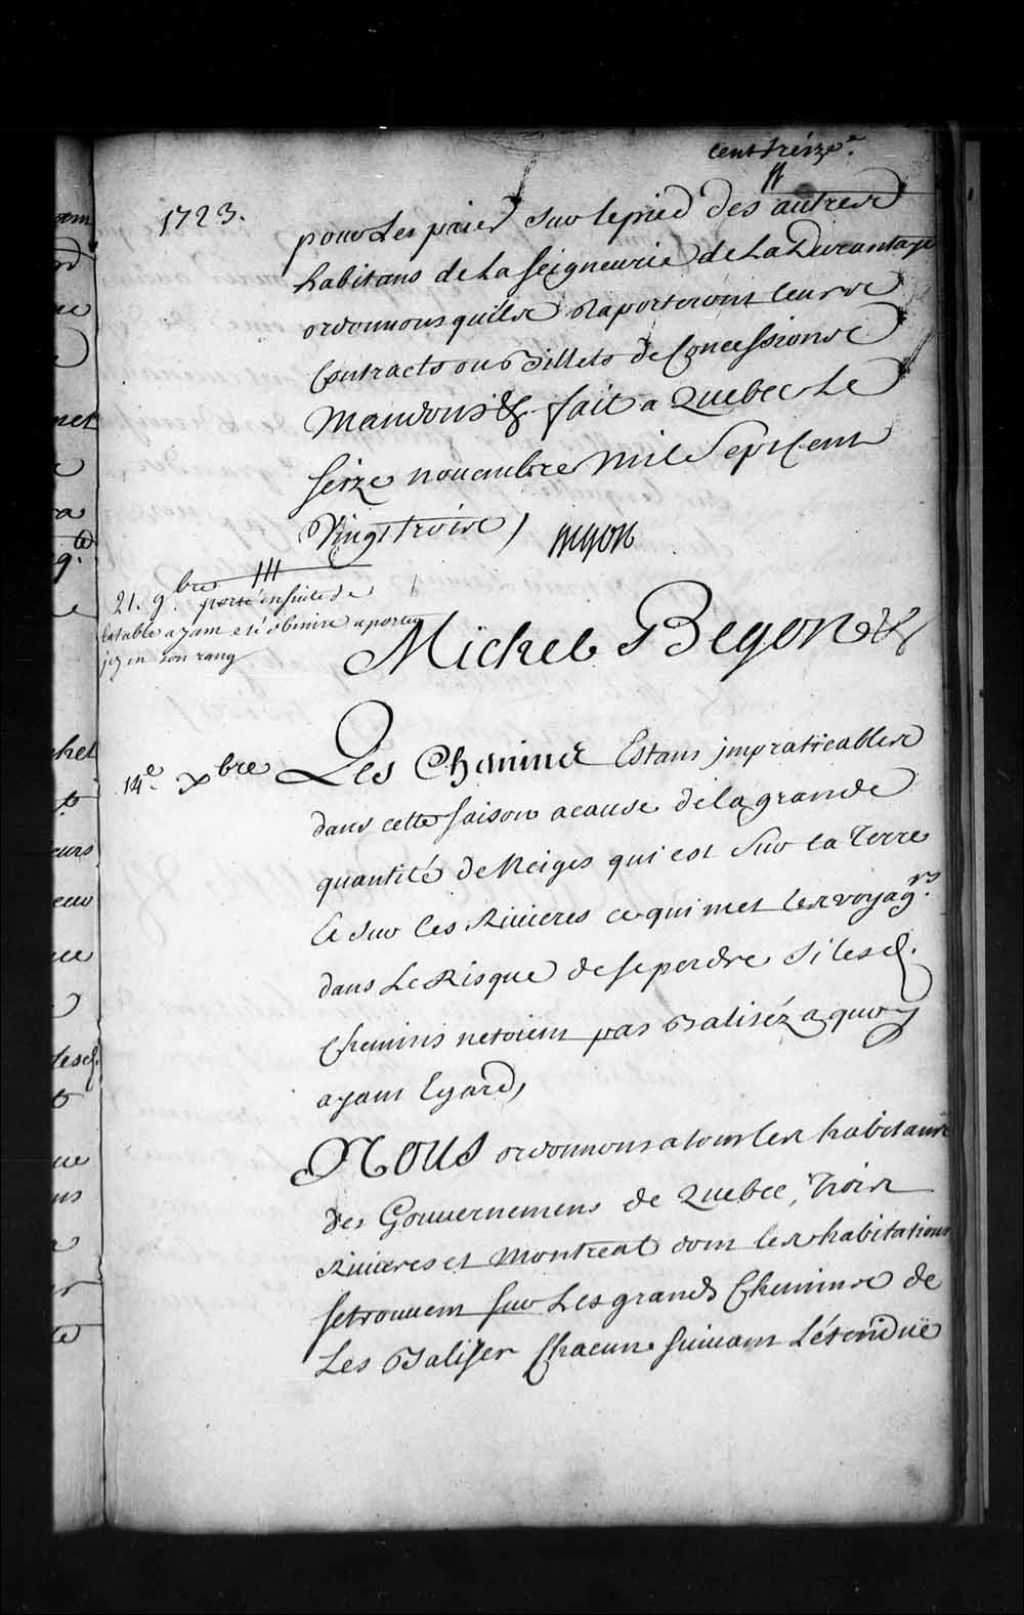 cent treize.e
1723.
pour Les prier sur le pied des autres
habitans de La seigneurie de La Durantaye
ordonnons quils raporteront leurs
Contracts ou Billets de Concessions
Mandons &c. fait a Quebec Le
seize nouembre Mil Sept Cent
Vingt trois / Begon
21. 9.bre porté ensuite de
la table ayant esté obmise a porter
jcy en son rang
Michel Begon &c
14.e xbre Les Chemins Estans jmpraticables
dans cette saison a cause de la grande
quantité de Neiges qui est Sur la Terre
et sur les Riuieres ce qui met les voyag.rs
dans Le Risque de se perdre si lesd.
Chemins netoient pas Balisez a quoy
ayant Egard,
NOUS ordonnons a tous les habitans
des Gouuernemens de Quebec, Trois
Riuieres et Montreal dont les habitations
se trouuent sur Les grands Chemins de
Les Baliser Chacun suiuant L'étenduë